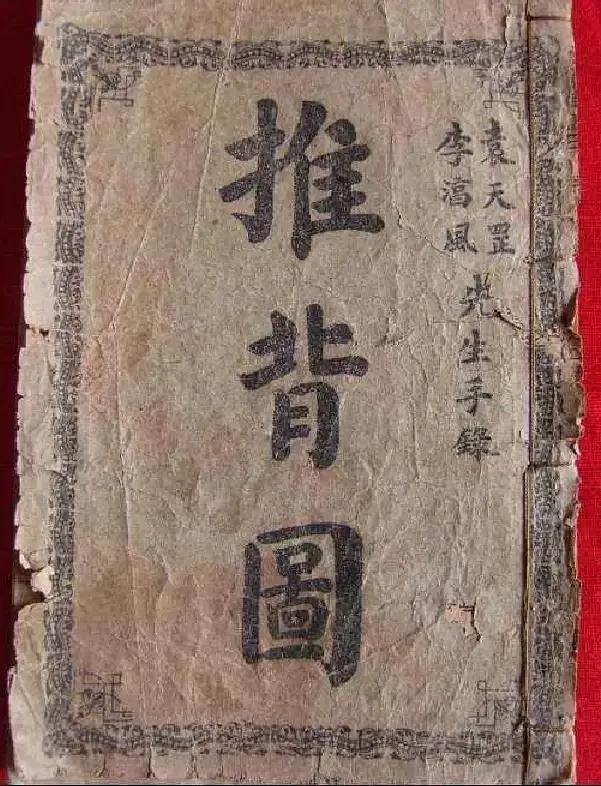 袁天罡
李湻風
先生手錄
推背圖